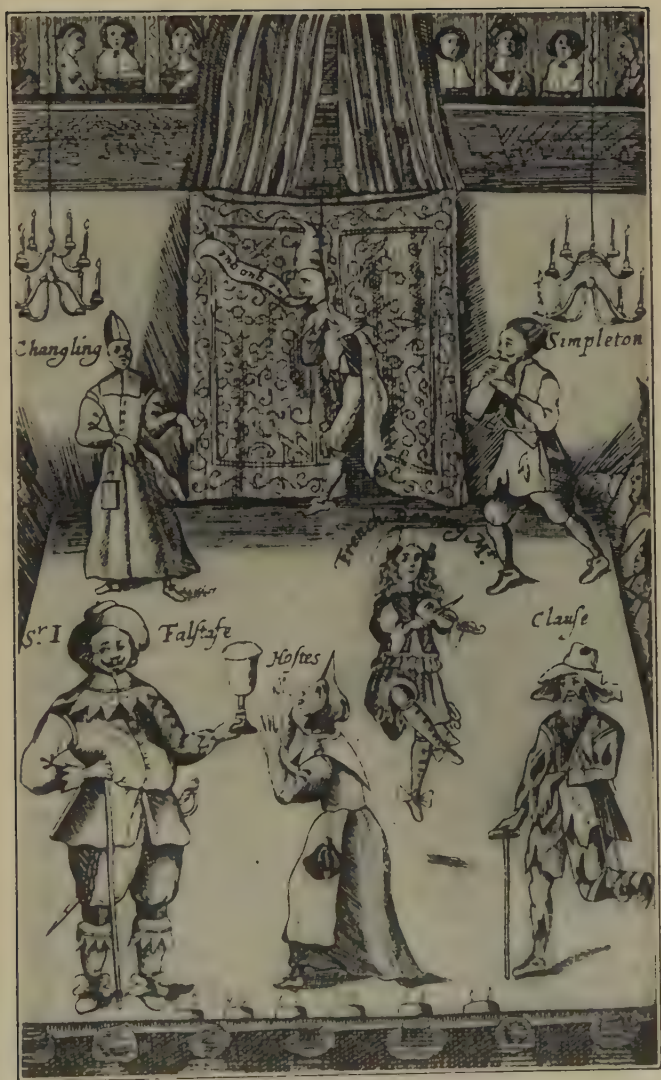 tu quo que
Changling
Simpleton
French Dancing Mr.
Clauſe
Sr. I Falſtafe
Hoſtes